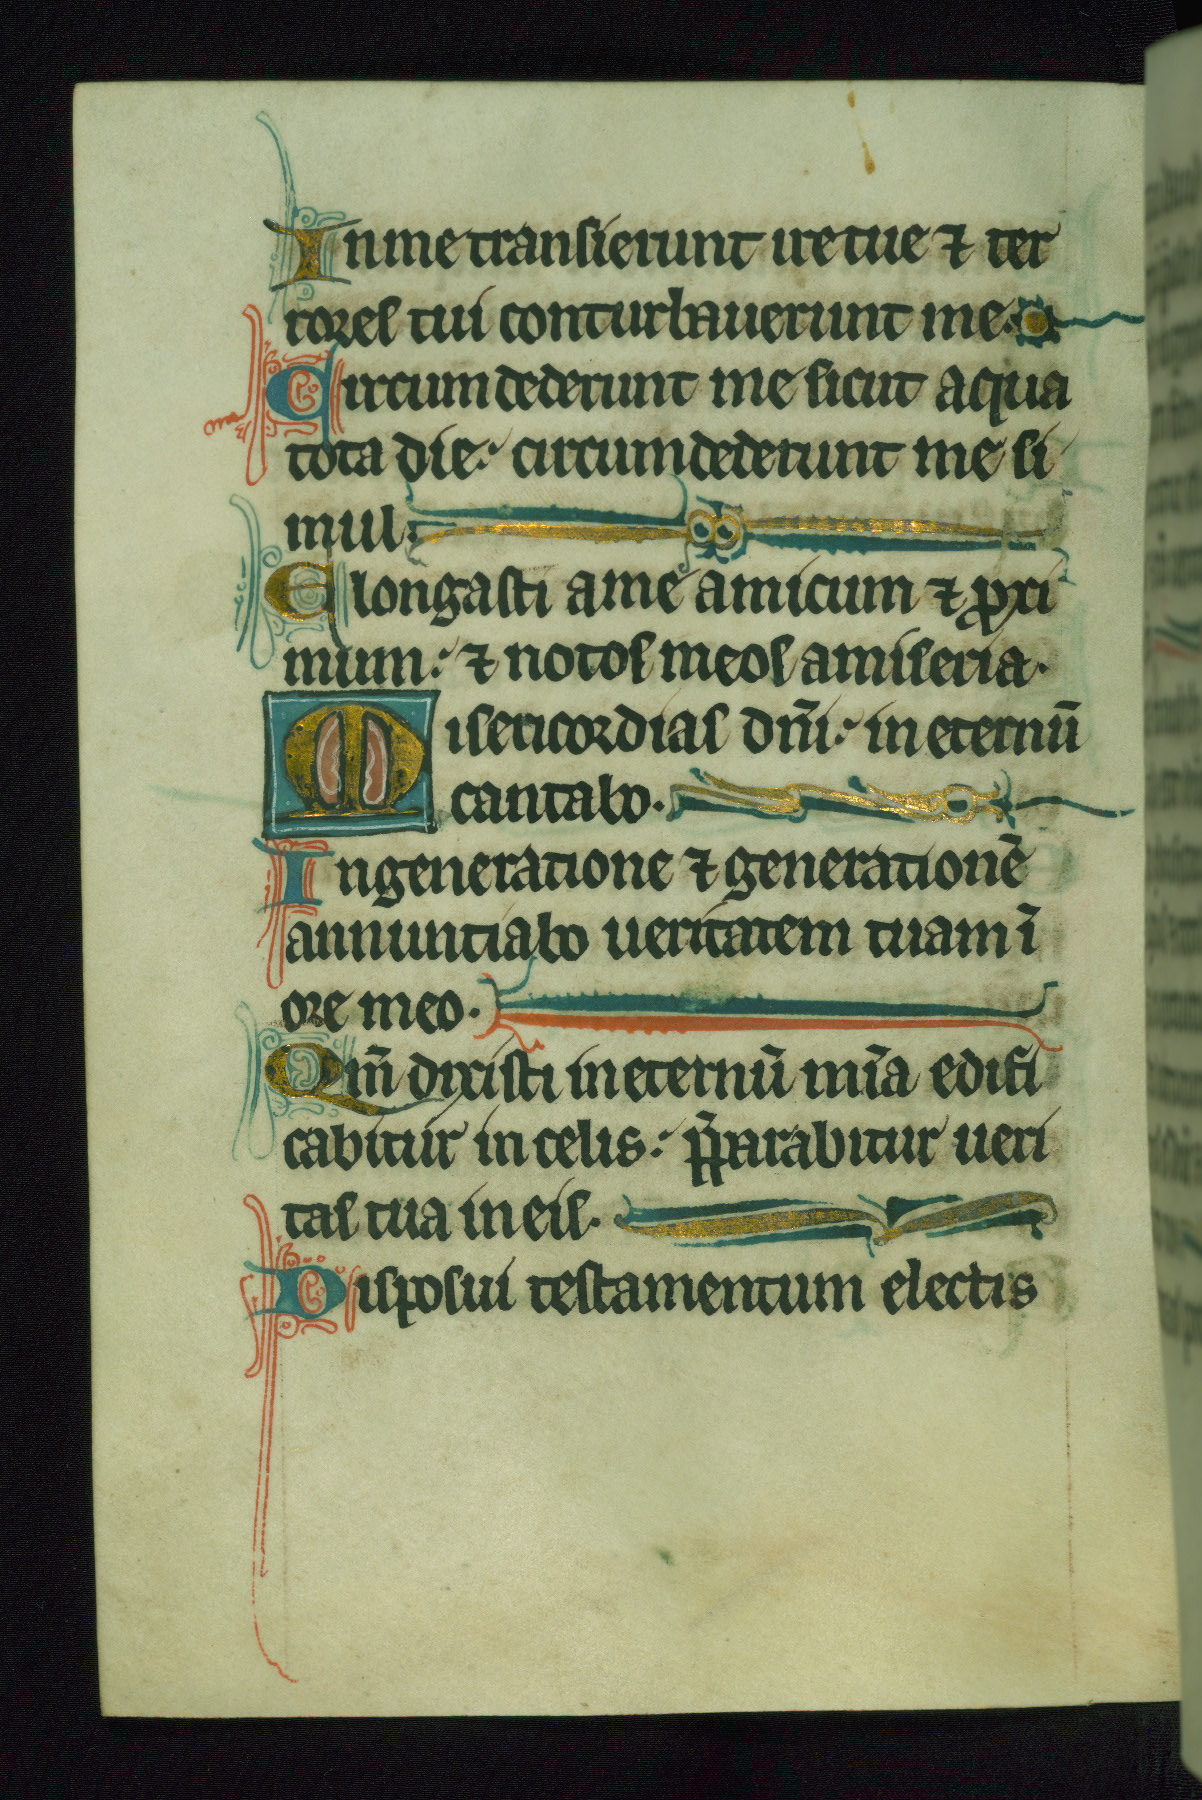 In me transierunt ire tue ⁊ ter
rores tui conturbauerunt me.
Circumdederunt me sicut aqua
tota die: circumdederunt me si
mul.
Elongasti a me amicum ⁊ ꝓxi
mum: ⁊ notos meos a miseria.
Misericordias dn̄i: in eternū
cantabo.
In generatione ⁊ generationē
annunciabo ueritatem tuam ī
ore meo.
Qm̄ dixisti in eternū mīa edifi
cabitur in celis: p̄parabitur ueri
tas tua in eis.
Disposui testamentum electis